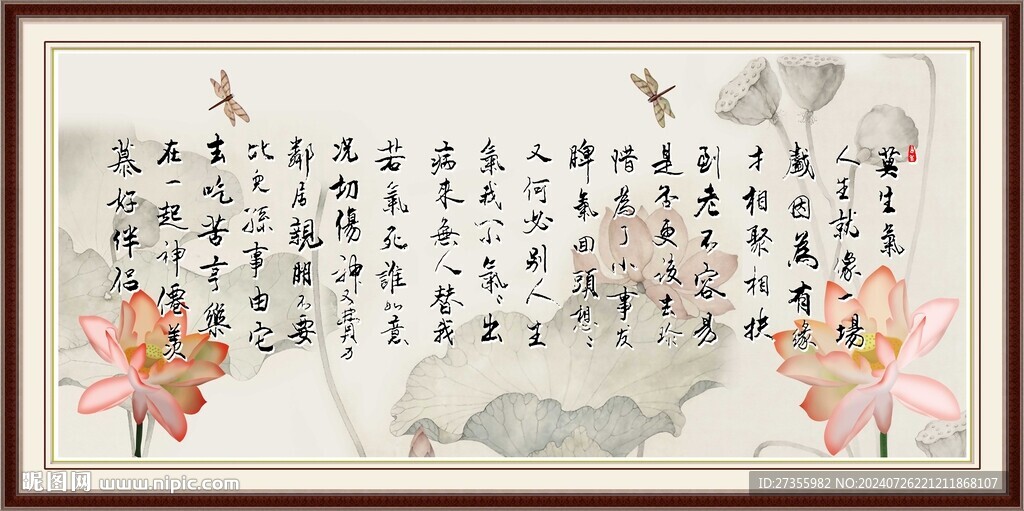 莫生氣
人生就像一場
戲因為有緣
才相聚相扶
到老不容易
是否更該去珍
惜為了小事发
脾氣回頭想〻
又何必別人生
氣我不氣〻出
病來無人替我
若氣死誰如意
况切傷神又費力
鄰居親朋不要
比兒孫事由它
去吃苦享樂
在一起神僊羡
慕好伴侶
昵图网 www.nipic.com
ID:27355982 NO:20240726221211868107